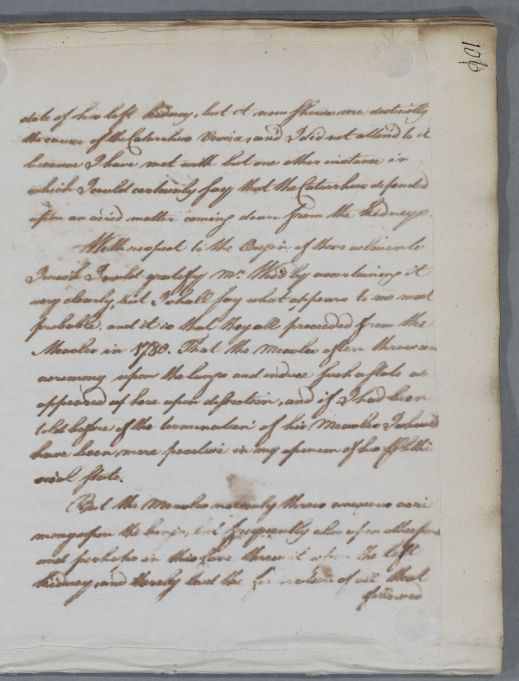 106
side of his left kidney, but it now shews me distinctly
the cause of the Catarrhus Vesicæ, and I did not attend to it
because I have met with but one other instance in
which I could certainly say that the Catarrhus depended
upon an acrid matter coming down from the kidneys.
With respect to the Origin of these ailments
I wish I could gratify Mr. by ascertaining it
very clearly, but I shall say what appears to me most
probable, and it is that they all proceeded from the
Measles in 1780. That the Measles often throws an
acrimony upon the lungs and induce such a state as
appeared at here upon dissection, and if I had been
told before of the termination of his Measles I should
have been more positive in my opinion of his
state.
But the Measles not only throws acri
mony upon the lungs, but frequently also upon other parts
and perhaps in this Case threw it upon the left
kidney, and thereby laid the foundation of all that
followed